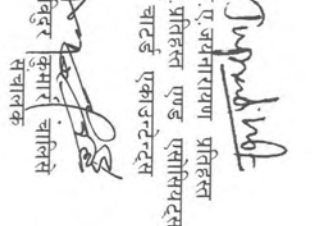 ए. जयनारायण प्रतिहस्त
प्रतिहस्त एण्ड एसोसियट्स
चाटर्ड एकाउन्टेन्ट्स
कुमार चालिसे
संचालक